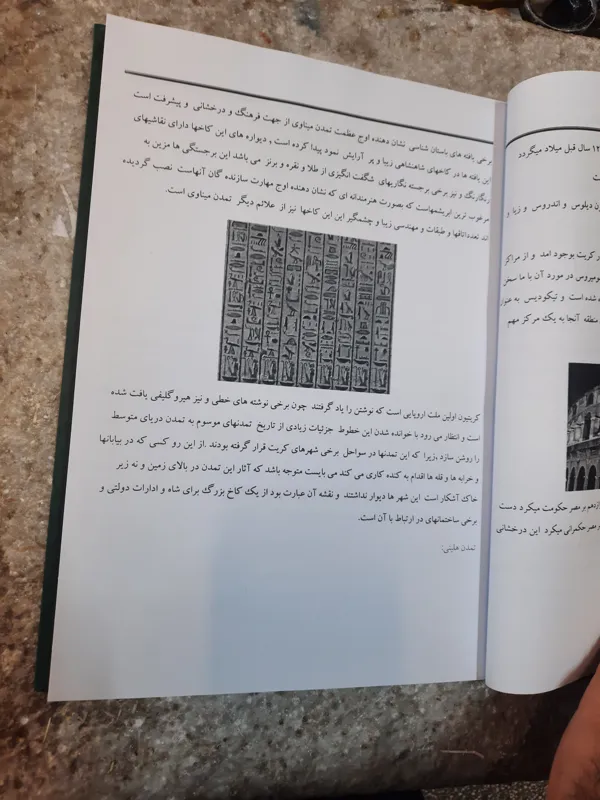 برخی یافته های باستان شناسی نشان دهنده اوج عظمت تمدن میناوی از جهت فرهنگ و درخشانی و پیشرفت است
این یافته ها در کاخهای شاهنشاهی زیبا و پر آرایش نمود پیدا کرده است , دیواره های این کاخها دارای نقاشیهای
رنگارنگ و نیز برخی برجسته نگاریهای شگفت انگیزی از طلا و نقره و برنز می باشد این برجستگی ها مزین به
مرغوب ترین ابریشمهاست که بصورت هنرمندانه ای که نشان دهنده اوج مهارت سازنده گان آنهاست نصب گردیده
اند تعدداتاقها و طبقات و مهندسی زیبا و چشمگیر این این کاخها نیز از علائم دیگر تمدن میناوی است.
کریتیون اولین ملت اروپایی است که نوشتن را یاد گرفتند چون برخی نوشته های خطی و نیز هیروگلیفی یافت شده
است و انتظار می رود با خوانده شدن این خطوط جزئیات زیادی از تاریخ تمدنهای موسوم به تمدن دریای متوسط
را روشن سازد ,زیرا که این تمدنها در سواحل برخی شهرهای کریت قرار گرفته بودند .از این رو کسی که در بیابانها
و خرابه ها و قله ها اقدام به کنده کاری می کند می بایست متوجه باشد که آثار این تمدن در بالای زمین و نه زیر
خاک آشکار است این شهر ها دیوار نداشتند و نقشه آن عبارت بود از یک کاخ بزرگ برای شاه و ادارات دولتی و
برخی ساختمانهای در ارتباط با آن است.
تمدن هلینی:
سال قبل میلاد میگردد
ون دیلوس و اندروس و زیا و
ر کریت بوجود امد و از مراکز
ومیروس در مورد آن با ما سخن
ه شده است و تیکودیس به عنوان
منطقه آنجا به یک مرکز مهم
ازدهم بر مصر حکومت میکرد دست
بر مصر حکمرانی میکرد این درخشانی